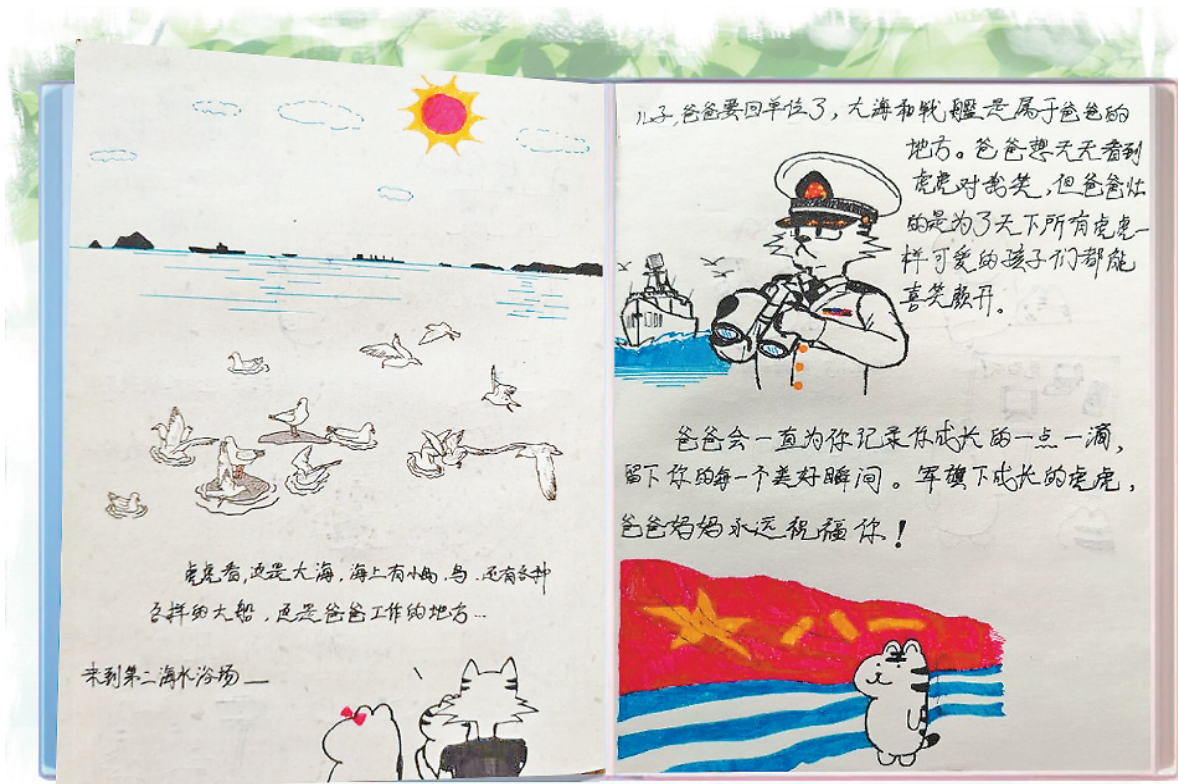 虎虎看,这是大海,海上有小岛、鸟、还有各种
各样的大船,这是爸爸工作的地方…
来到第二海水浴场——
儿子,爸爸要回单位了,大海和战舰是属于爸爸的
地方。爸爸想天天看到
虎虎对我笑,但爸爸忙
的是为了天下所有虎虎一
样可爱的孩子们都能
喜笑颜开。
爸爸会一直为你记录你成长的一点一滴,
留下你的每一个美好瞬间。军旗下成长的虎虎,
爸爸妈妈永远祝福你!
八一